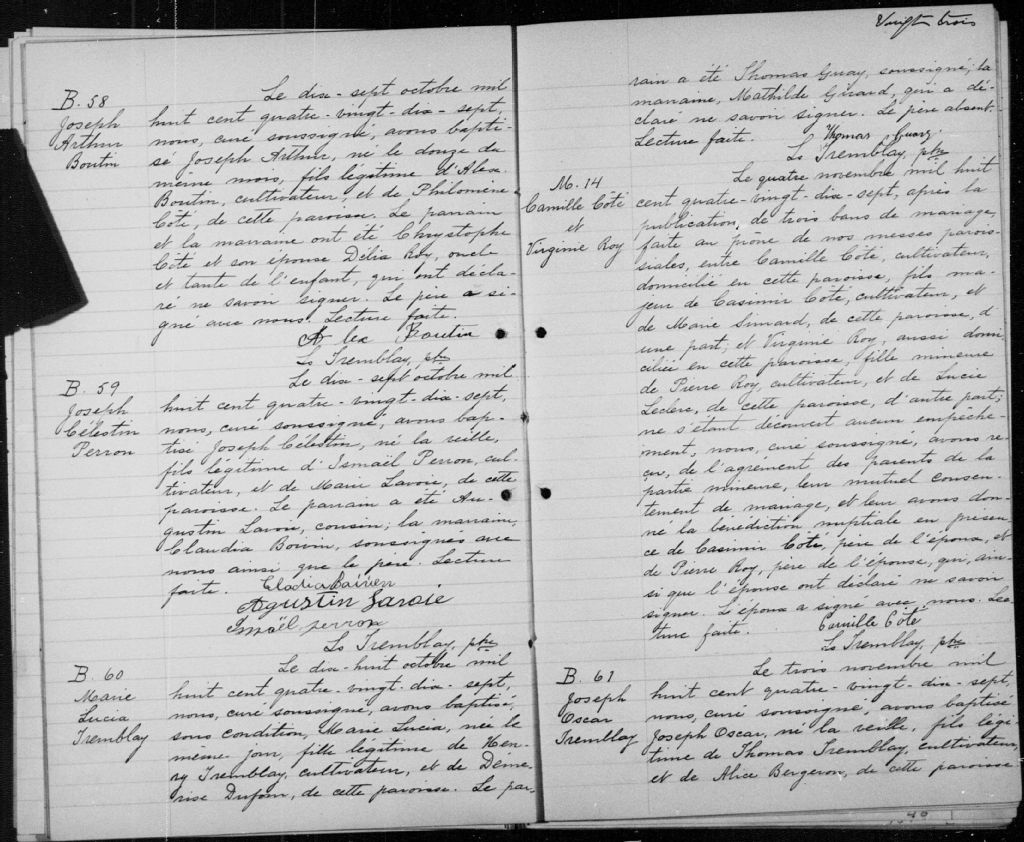 B. 58
Joseph
Arthur
Boutin
Le dix-sept octobre mil
huit cent quatre-vingt-dix-sept,
nous, curé soussigné, avons bapti-
sé Joseph Arthur, né le douze du
même mois, fils légitime d'Alex.
Boutin, cultivateur, et de Philomène
Côté, de cette paroisse. Le parrain
et la marraine ont été Chrystophe
Côté et son épouse Délia Roy, oncle
et tante de l'enfant, qui ont décla-
ré ne savoir signer. Le père a si-
gné avec nous. Lecture faite.
Alex Boutin
Ls Tremblay, ptre
B. 59
Joseph
Célestin
Perron
Le dix-sept octobre mil
huit cent quatre-vingt-dix-sept,
nous, curé soussigné, avons bap-
tisé Joseph Célestin, né la veille,
fils légitime d'Ismaël Perron, cul-
tivateur, et de Marie Lavoie, de cette
paroisse. Le parrain a été Au-
gustin Lavoie, cousin; la marraine,
Claudia Boivin, soussignés avec
nous ainsi que le père. Lecture
faite.
Agustin Lavoie
Ismaël perron
Ls Tremblay, ptre
B. 60
Marie
Lucia
Tremblay
Le dix-huit octobre mil
huit cent quatre-vingt-dix-sept,
nous, curé soussigné, avons baptisé,
sous condition, Marie Lucia, née le
même jour, fille légitime de Hen-
ry Tremblay, cultivateur, et de Déme
rise Dufour, de cette paroisse. Le par-
Vingt trois
rain a été Thomas Guay, soussigné; la
marraine, Mathilde Girard, qui a dé-
claré ne savoir signer. Le père absent.
Lecture faite. Thomas Guay
Ls Tremblay, ptre
M. 14
Camille Côté
et
Virginie Roy
Le quatre novembre mil huit
cent quatre-vingt-dix-sept, après la
publication de trois bans de mariage,
faite au prône de nos messes parois-
siales, entre Camille Côté, cultivateur,
domicilié en cette paroisse, fils ma-
jeur de Casimir Côté, cultivateur, et
de Marie Simard, de cette paroisse, d'
une part; et Virginie Roy, aussi domi
ciliée en cette paroisse, fille mineure
de Pierre Roy, cultivateur, et de Lucie
Leclerc, de cette paroisse, d'autre part;
ne s'étant découvert aucun empêche-
ment, nous, curé soussigné, avons re-
çu, de l'agrément des parents de la
partie mineure, leur mutuel consen-
tement de mariage, et leur avons don-
né la bénédiction nuptiale en présen-
ce de Casimir Côté, père de l'époux, et
de Pierre Roy, père de l'épouse, qui, ain-
si que l'épouse ont déclaré ne savoir
signer. L'époux a signé avec nous. Lec-
ture faite. Camille Côté
Ls Tremblay, ptre
B. 61
Joseph
Oscar
Tremblay
Le trois novembre mil
huit cent quatre-vingt-dix-sept,
nous, curé soussigné, avons baptisé
Joseph Oscar, né la veille, fils légi-
time de Thomas Tremblay, cultivateur,
et de Alice Bergeron, de cette paroisse